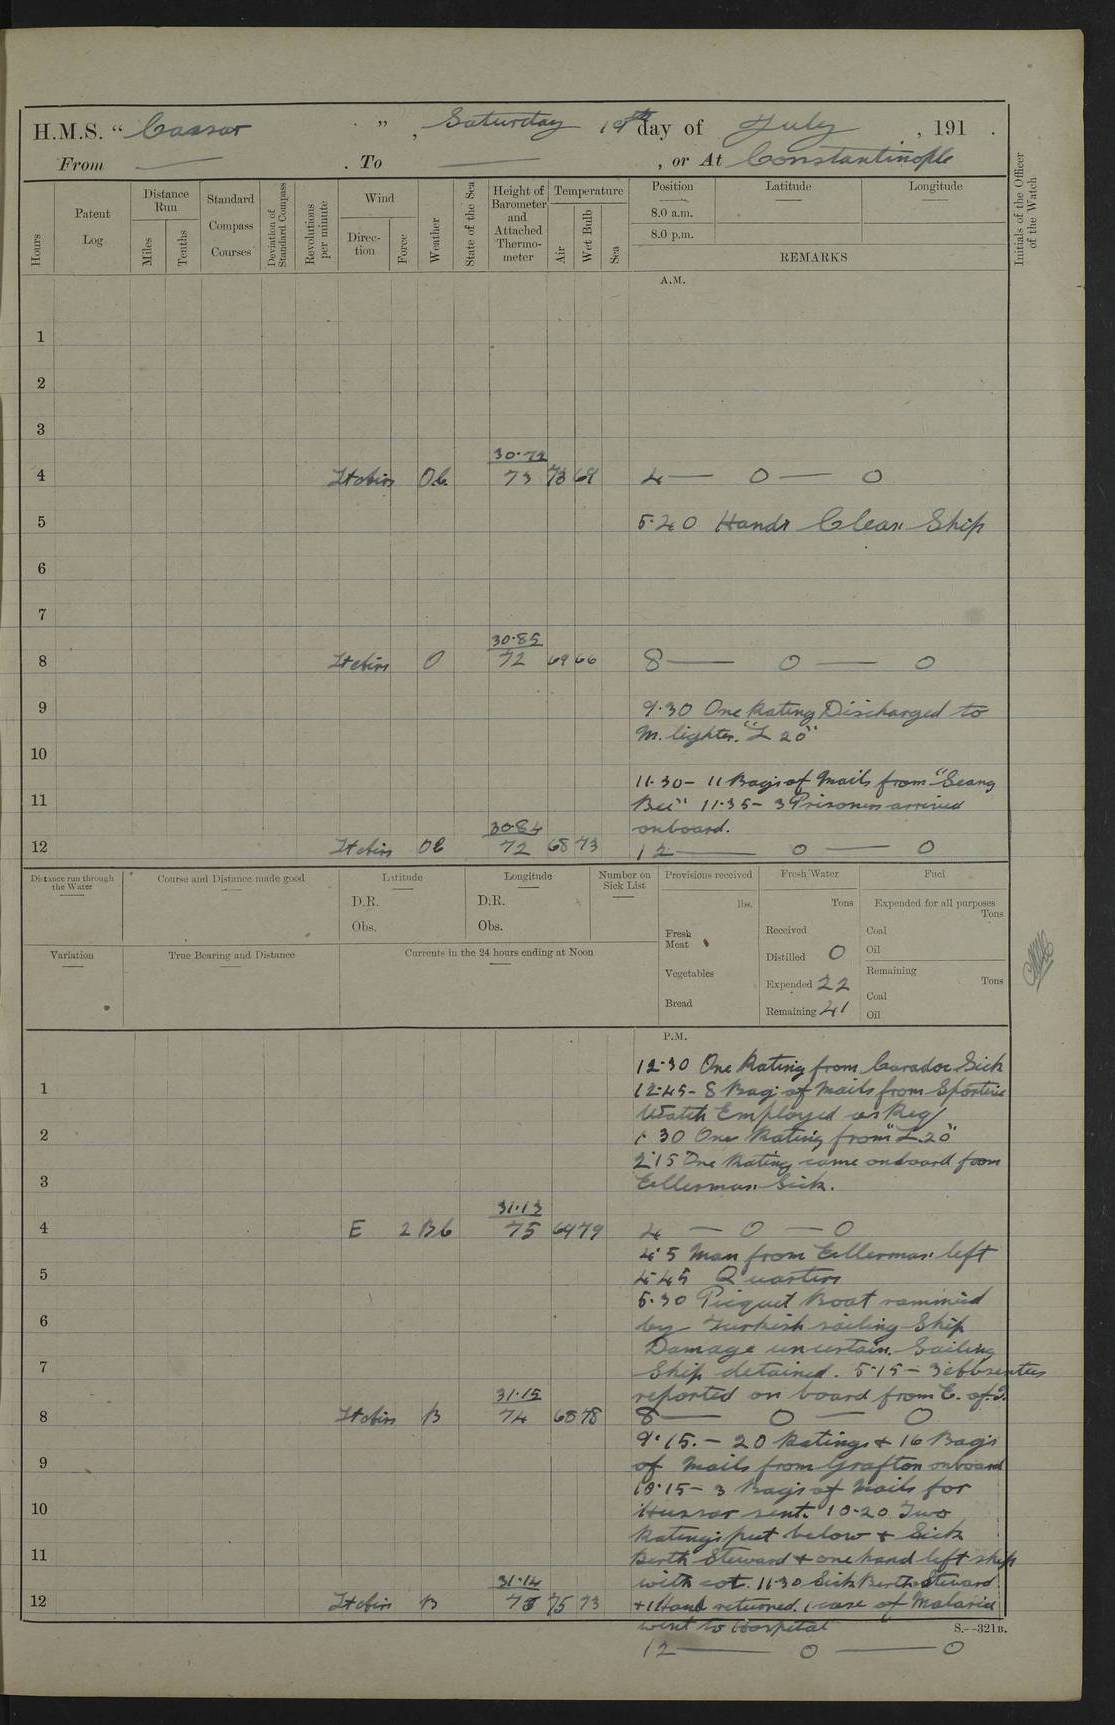 H.M.S. “ Caesar ” , Saturday 19th day of July , 191 .
From — . To — , or At Constantinople
Hours
Patent Log
Distance Run
Miles
Tenths
Standard Compass Courses
Deviation of Standard Compass
Revolutions per minute
Wind
Direction
Force
Weather
State of the Sea
Height of Barometer and Attached Thermometer
Temperature
Air
Wet Bulb
Sea
Position
8.0 a.m.
8.0 p.m.
Latitude
Longitude
REMARKS
Initials of the Officer of the Watch
A.M.
1
2
3
30·72
4 Lt airs 73 73 68 4 — 0 — 0
5 5·20 Hands Clean Ship
6
7
30·85
8 Lt airs O 72 69 66 8 — 0 — 0
9 9·30 One Rating Discharged to
M. lighter. "L 20"
10
11·30 – 11 Bags of Mails from "Seang
11 Bee" 11·35 – 3 Prisoners arrived
30·84 onboard.
12 Lt airs 72 68 73 12 — 0 — 0
Distance run through the Water
Course and Distance made good
Latitude
D.R.
Obs.
Longitude
D.R.
Obs.
Number on Sick List
Provisions received
lbs.
Fresh Meat
Vegetables
Bread
Fresh Water
Tons
Received
Distilled 0
Expended 22
Remaining 41
Fuel
Expended for all purposes
Tons
Coal
Oil
Remaining
Tons
Coal
Oil
Variation
True Bearing and Distance
Currents in the 24 hours ending at Noon
P.M.
12·30 One Rating from Caradoc Sick
1 12·45 – 8 Bags of Mails from Sportive
Watch Employed as Req/
2 1·30 One Rating from "L.20"
2·15 One Rating came onboard from
3 Ellerman Sick.
31·13
4 E 2 B6 75 69 79 4 — 0 — 0
4·5 Man from Ellerman left
5 4·45 Quarters
5·30 Picquet Boat rammed
6 by Turkish sailing Ship
Damage uncertain. Sailing
7 Ship detained. 5·15 – 3 absentees
31·15 reported on board from
8 Lt airs B 74 68 78 8 — 0 — 0
9·15. – 20 Ratings + 16 Bags
9 of Mails from Grafton onboard
10·15 – 3 Bags of Mails for
10 Hussar sent. 10·20 Two
Ratings put below + Sick
11 Berth Steward + one hand left ship
31·14 with cot. 11·30 Sick Berth Steward
12 Lt airs B 75 73 + 1 Hand returned. 1 case of Malaria
went to Hospital
S.—321B.
12 — 0 — 0